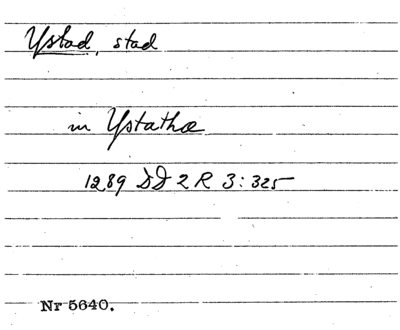 Ystad, stad
in Ystathæ
1289 DD 2 R 3:325
Nr 5640.